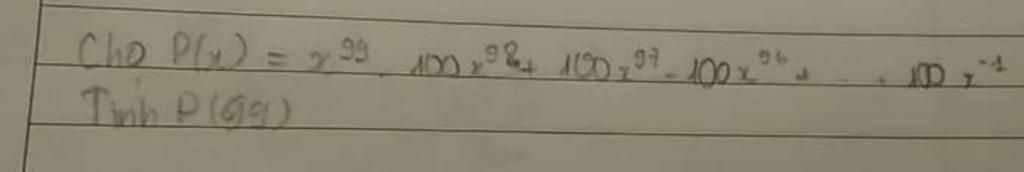 Cho P(x) = x^99 - 100x^98 + 100x^97 - 100x^96 + ... . 100x^-1
Tính P(99)